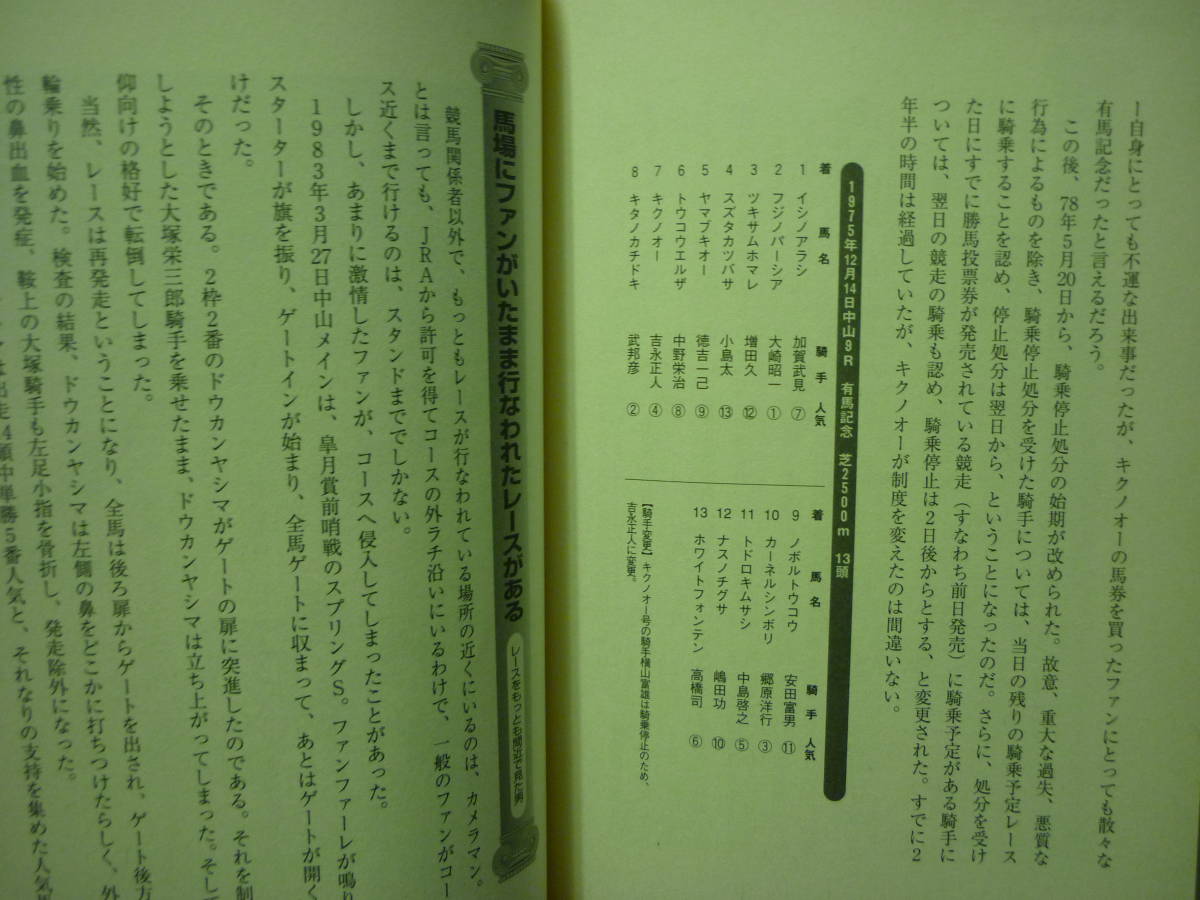 ー自身にとっても不運な出来事だったが、キクノオーの馬券を買ったファンにとっても散々な
有馬記念だったと言えるだろう。
この後、78年5月20日から、騎乗停止処分の始期が改められた。故意、重大な過失、悪質な
行為によるものを除き、騎乗停止処分を受けた騎手については、当日の残りの騎乗予定レース
に騎乗することを認め、停止処分は翌日から、ということになったのだ。さらに、処分を受け
た日にすでに勝馬投票券が発売されている競走（すなわち前日発売）に騎乗予定がある騎手に
ついては、翌日の競走の騎乗も認め、騎乗停止は2日後からとする、と変更された。すでに2
年半の時間は経過していたが、キクノオーが制度を変えたのは間違いない。
1975年12月14日中山9R 有馬記念 芝2500m 13頭
着 馬名 騎手 人気
1 イシノアラシ 加賀武見 ⑦
2 フジノパーシア 大崎昭一 ①
3 ツキサムホマレ 増田久 ⑫
4 スズカツバサ 小島太 ⑬
5 ヤマブキオー 徳吉一己 ⑨
6 トウコウエルザ 中野栄治 ⑧
7 キクノオー 吉永正人 ④
8 キタノカチドキ 武邦彦 ②
着 馬名 騎手 人気
9 ノボルトウコウ 安田富男 ⑪
10 カーネルシンボリ 郷原洋行 ③
11 トドロキムサシ 中島啓之 ⑤
12 ナスノチグサ 嶋田功 ⑩
13 ホワイトフォンテン 高橋司 ⑥
【騎手変更】キクノオー号の騎手横山富雄は騎乗停止のため、
吉永正人に変更。
馬場にファンがいたまま行なわれたレースがある
レースをもっとも間近で見た男
競馬関係者以外で、もっともレースが行なわれている場所の近くにいるのは、カメラマン。
とは言っても、JRAから許可を得てコースの外ラチ沿いにいるわけで、一般のファンがコー
ス近くまで行けるのは、スタンドまででしかない。
しかし、あまりに激情したファンが、コースへ侵入してしまったことがあった。
1983年3月27日中山メインは、皐月賞前哨戦のスプリングS。ファンファーレが鳴り
スターターが旗を振り、ゲートインが始まり、全馬ゲートに収まって、あとはゲートが開く
けだった。
そのときである。2枠2番のドウカンヤシマがゲートの扉に突進したのである。それを制
しようとした大塚栄三郎騎手を乗せたまま、ドウカンヤシマは立ち上がってしまった。そして
仰向けの格好で転倒してしまった。
当然、レースは再発走ということになり、全馬は後ろ扉からゲートを出され、ゲート後方
輪乗りを始めた。検査の結果、ドウカンヤシマは左側の鼻をどこかに打ちつけたらしく、外
性の鼻出血を発症、鞍上の大塚騎手も左足小指を骨折し、発走除外になった。
は出走14頭中単勝5番人気と、それなりの支持を集めた人気